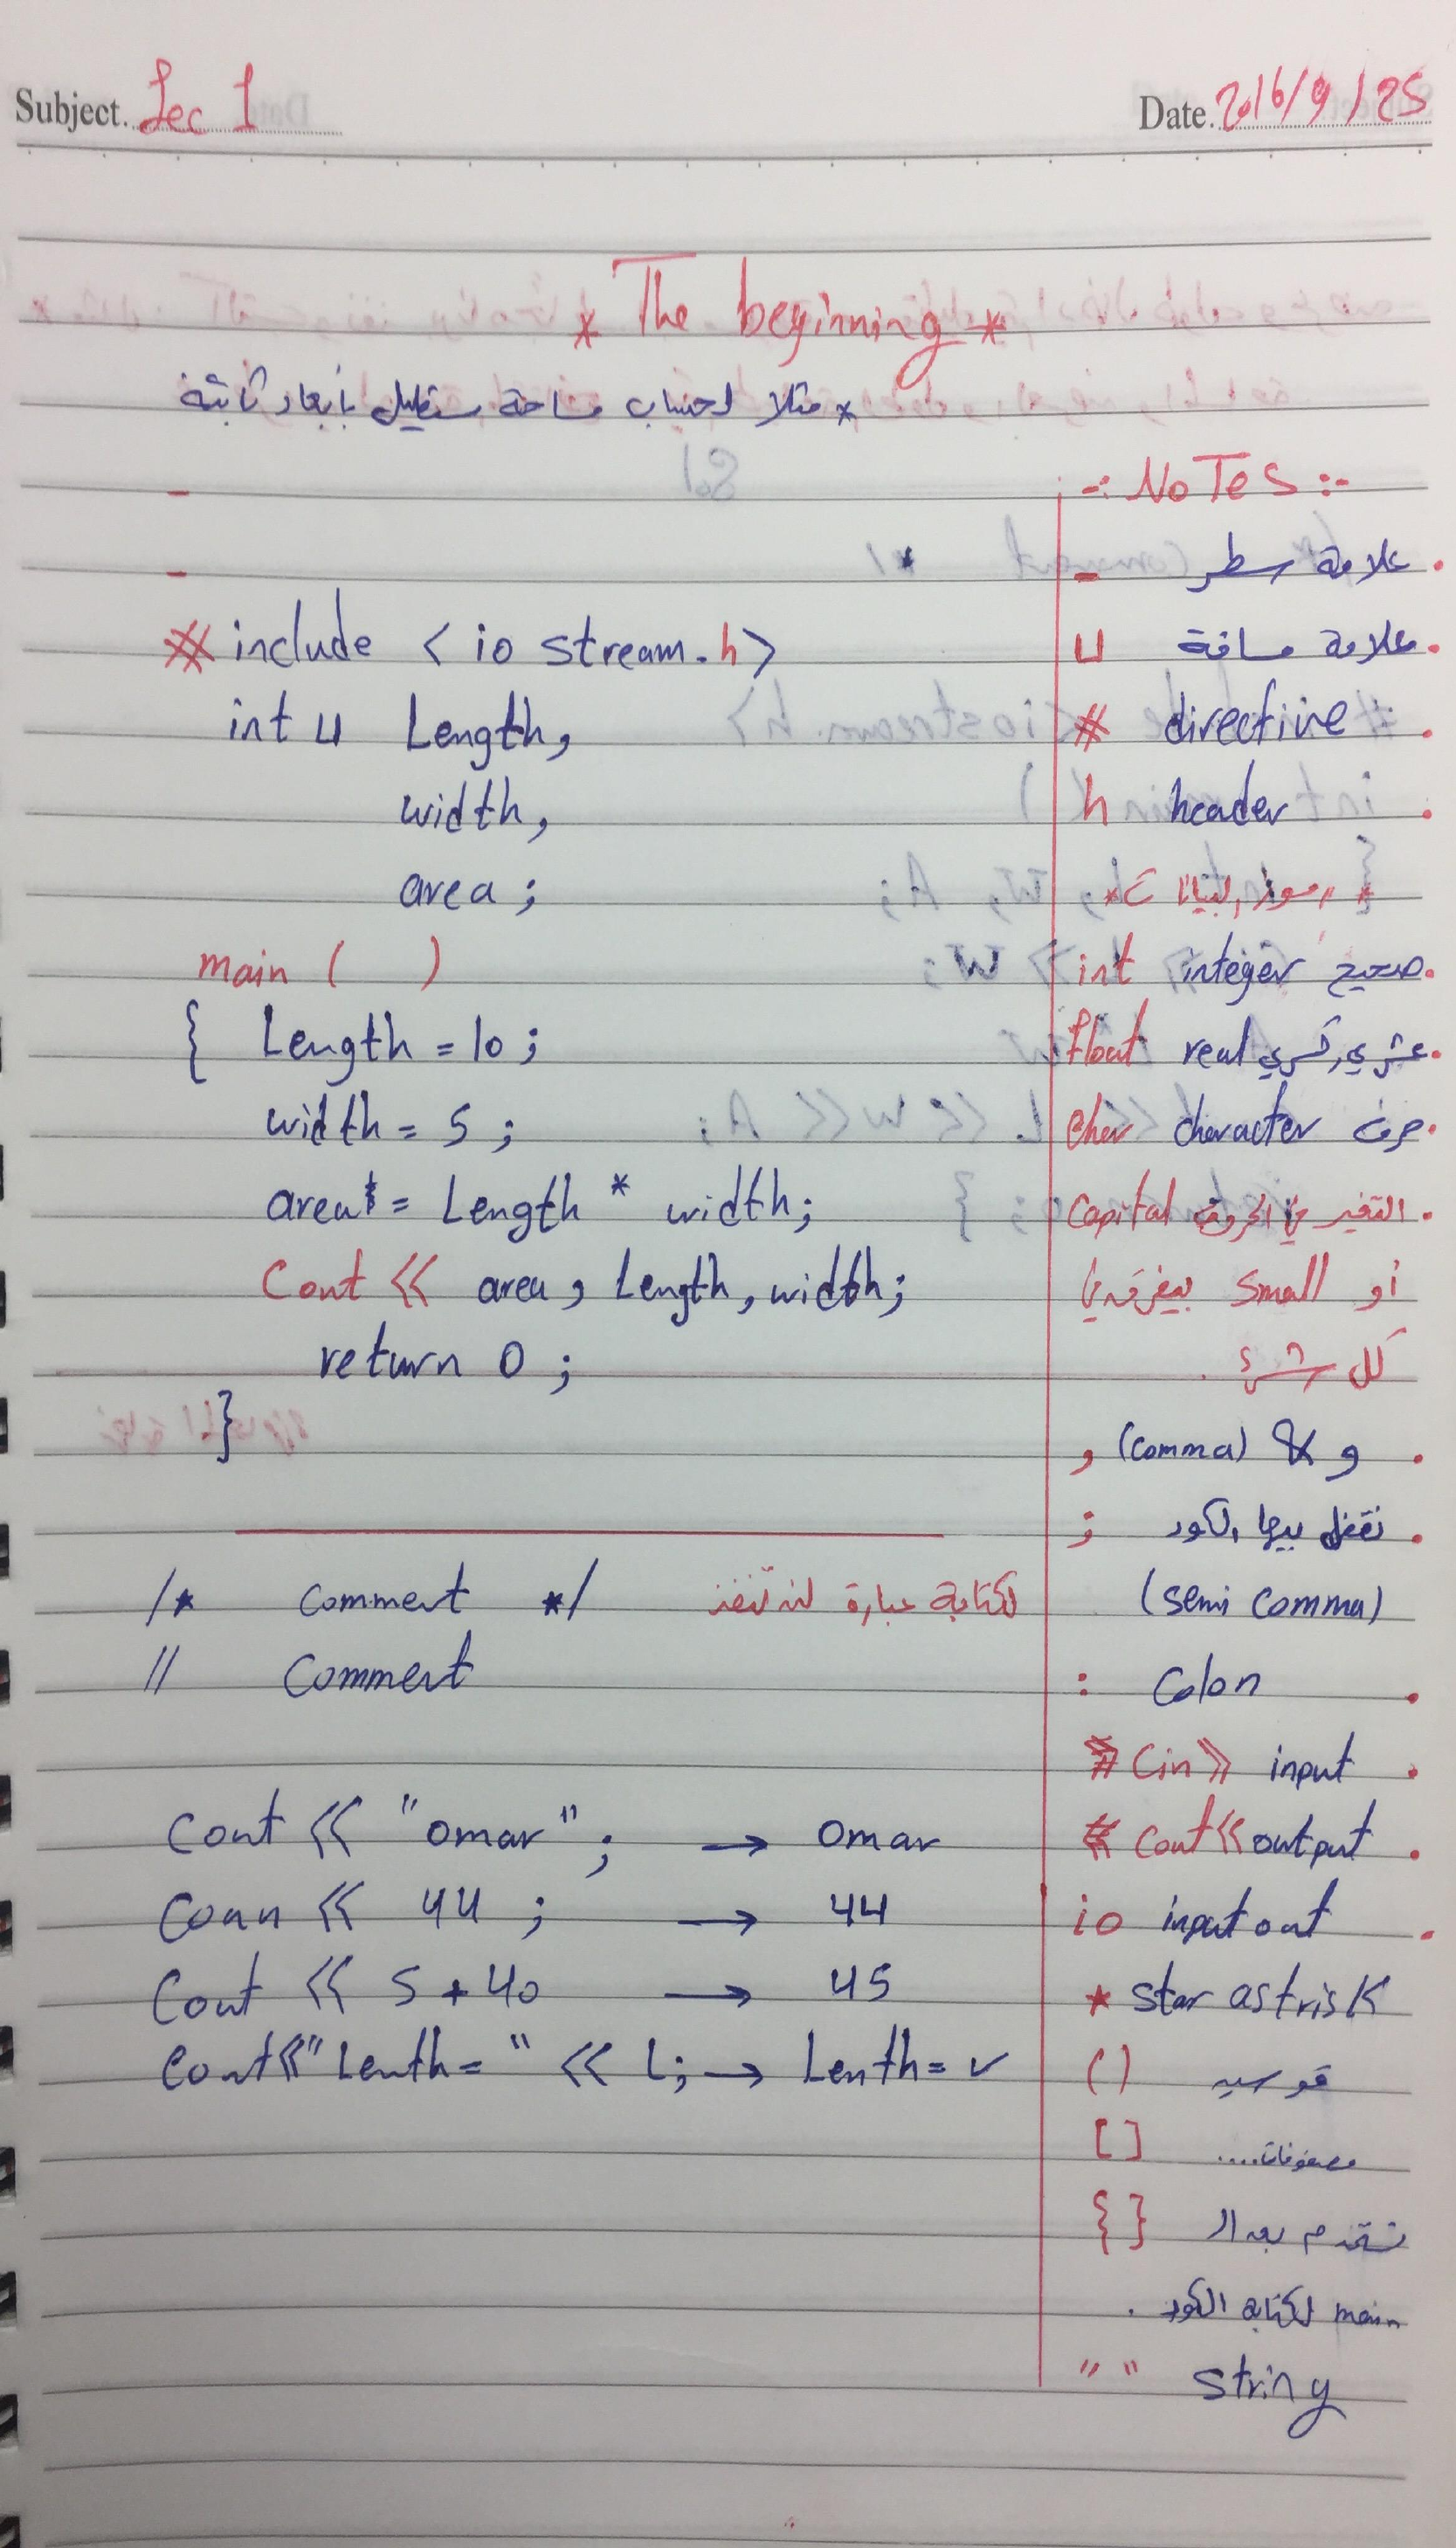 Subject. Lec 1
Date. 2016/9/25
* The beginning *
* مثلا احسب مساحة مستطيل بأبعاد ثابتة
-
-
# include < io stream.h>
int ⊔ Length,
width,
area ;
main ( )
{ Length = 10 ;
width = 5 ;
area = Length * width;
Cout << area , Length, width;
return 0 ;
}
/* Comment */ لكتابة عبارة لن تنفذ
// Comment
Cout << "omar" ; → omar
Cout << 44 ; → 44
Cout << 5 + 40 → 45
Cout<<"Lenth= " << L; → Lenth= ✓
-: NOTES :-
- علامة سطر .
⊔ علامة مسافة .
# directive .
h header .
int integer صحيح .
float real عشري, كسري .
char character حرف .
التغير في الحروف capital .
أو small بيفرق في
كل شيء .
, (comma) & و .
; نقفل بيها الكود .
(semi comma)
: Colon .
Cin >> input .
Cout << output .
io input out .
* star astrisk
( ) قوسين
[ ] مصفوفات....
{ } تستخدم بعد الـ
main لكتابة الكود .
" " string